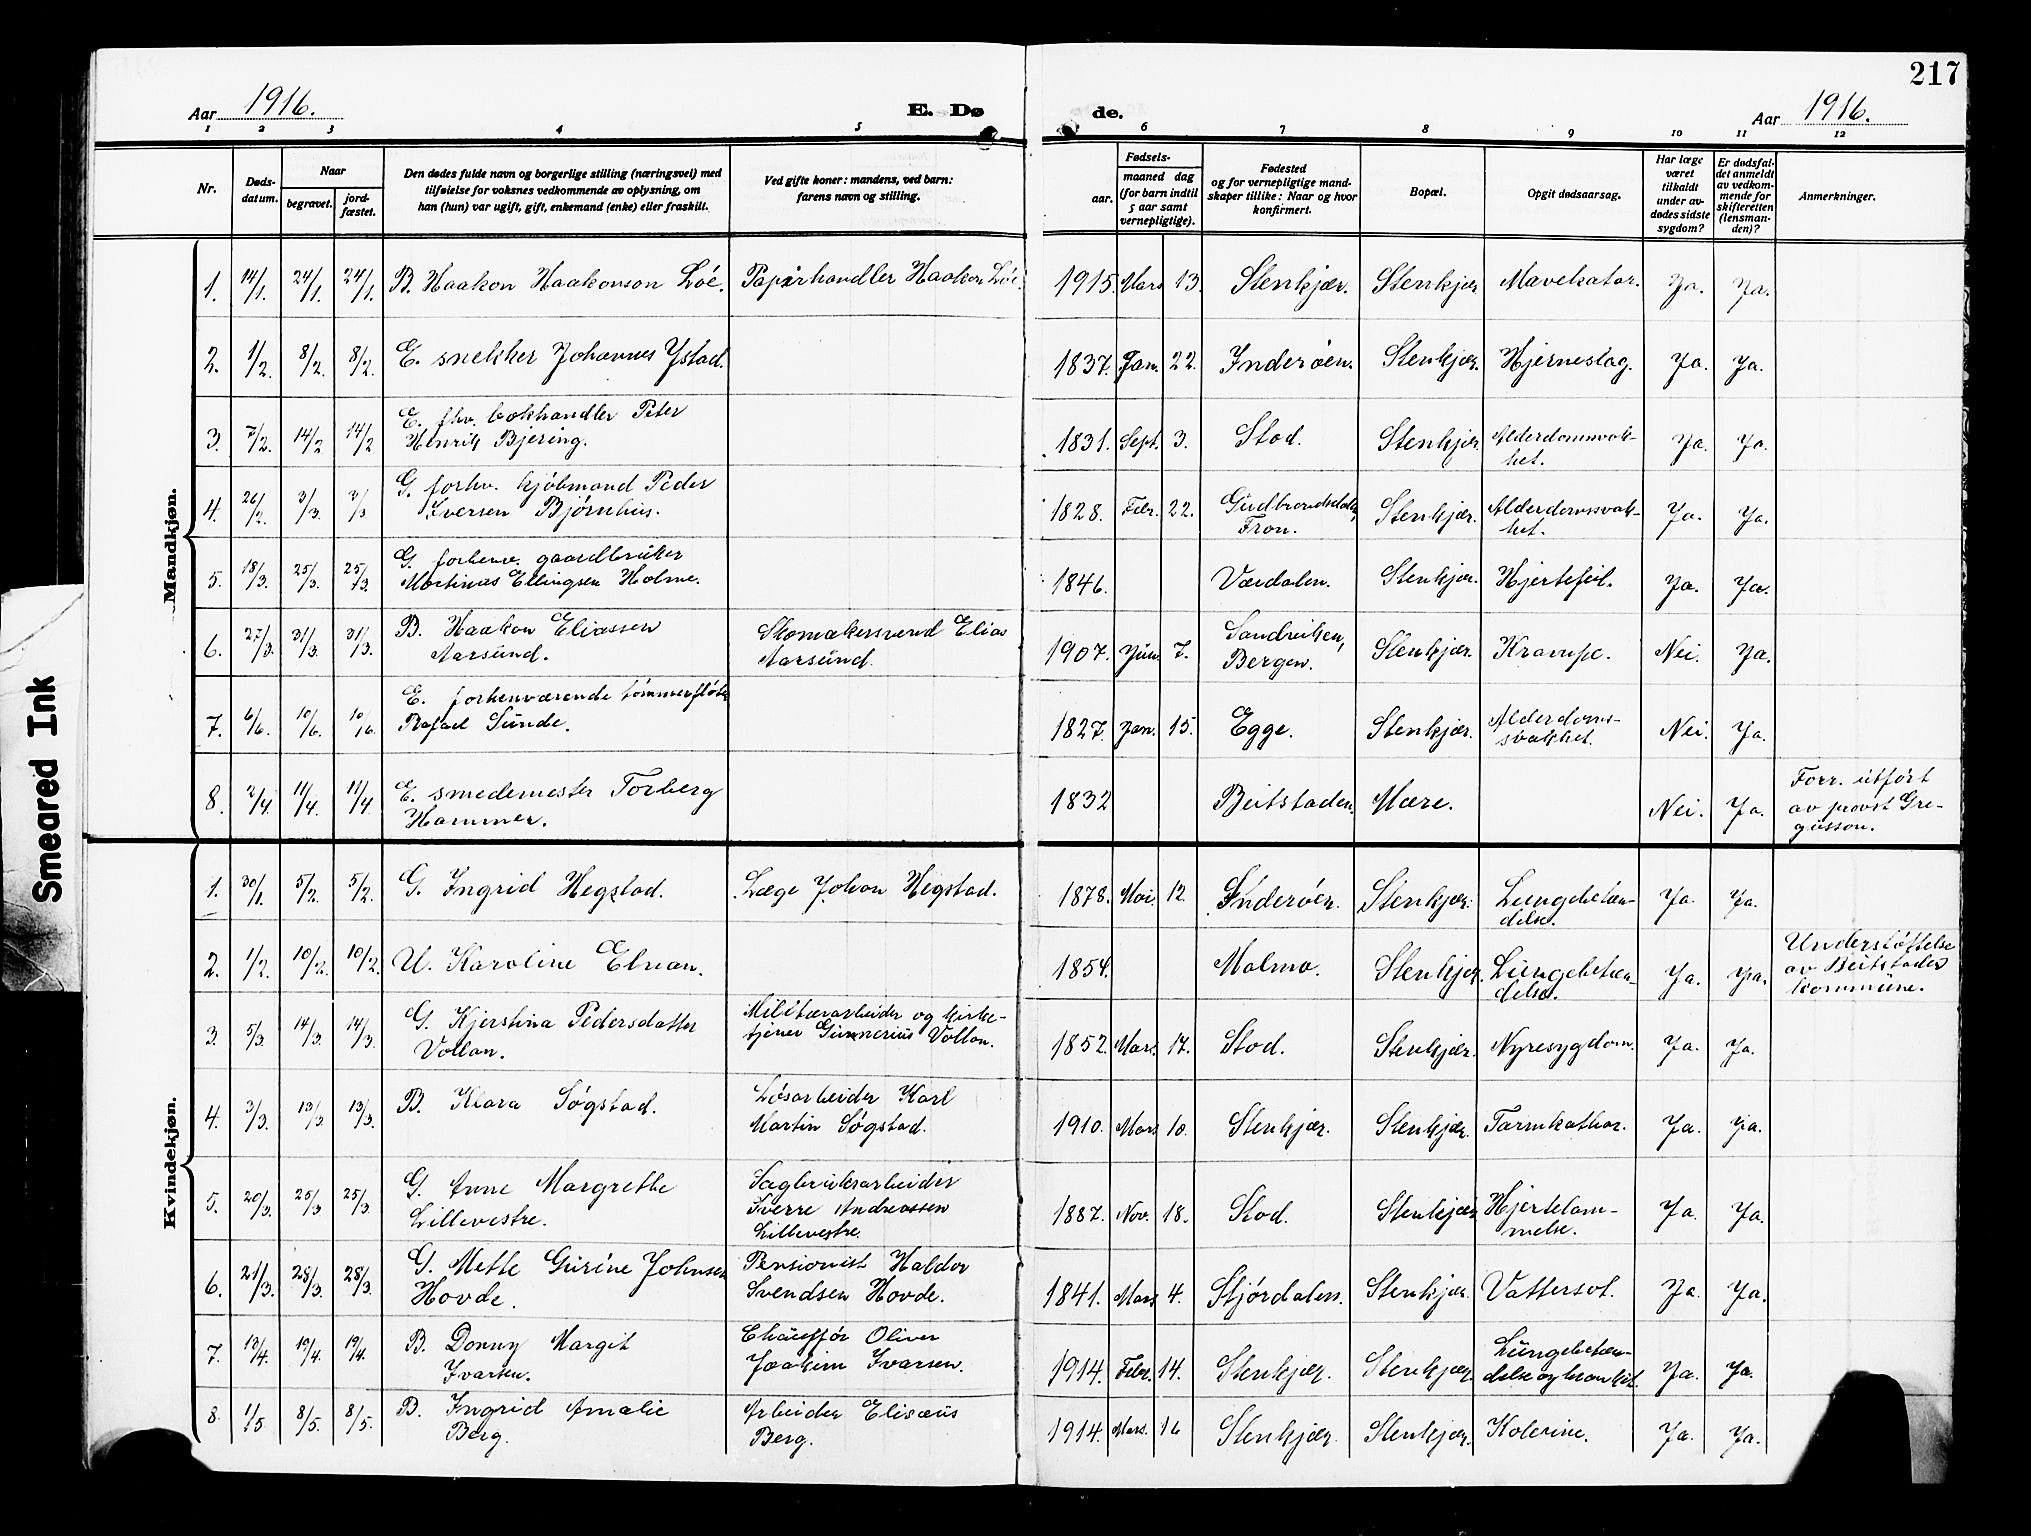 217
Aar 1916. E. Dø de. Aar 1916.
1 2 3 4 5 6 7 8 9 10 11 12
Nr. | Døds-datum. | Naar begravet. | jord-fæstet. | Den dødes fulde navn og borgerlige stilling (næringsvei) med tilføielse for voksnes vedkommende av oplysning, om han (hun) var ugift, gift, enkemand (enke) eller fraskilt. | Ved gifte koner: mandens, ved barn: farens navn og stilling. | aar. | Fødsels- maaned dag (for barn indtil 5 aar samt vernepligtige). | Fødested og for vernepligtige mand-skaper tillike: Naar og hvor konfirmert. | Bopæl. | Opgit dødsaarsag. | Har læge været tilkaldt under av-dødes sidste sygdom? | Er dødsfal-det anmeldt av vedkom-mende for skifteretten (lensman-den)? | Anmerkninger.
Mandkjøn.
1. 14/1. 24/1. 24/1. B. Haakon Haakonson Löe. Papirhandler Haakon Löe. 1915. Mars 13. Stenkjær. Stenkjær Mavekatar. Ja. Ja.
2. 1/2. 8/2. 8/2. E. snekker Johannes Ystad. 1837. Jan. 22. Inderøen. Stenkjær. Hjerneslag. Ja. Ja.
3. 7/2. 14/2 14/2 E. fhv. bokhandler Peter Henrik Bjering. 1831. Sept. 3. Stod. Stenkjær Alderdomsvak-het. Ja. Ja.
4. 26/2. 3/3. 3/3 G. forhv. kjöbmand Peder Iversen Bjørnhus. 1828. Febr. 22. Gudbrandsdalen, Fron. Stenkjær. Alderdomsvak-het. Ja. Ja.
5. 18/3. 25/3. 25/3. G. forhenv. gaardbruker Martinus Ellingsen Holme. 1846. Værdalen. Stenkjær. Hjertefeil. Ja. Ja.
6. 27/3. 31/3. 31/3. B. Haakon Eliassen Aarsund. Skomakersvend Elias Aarsund. 1907. Juni 7. Sandviken, Bergen. Stenkjær. Krampe. Nei. Ja.
7. 6/6. 10/6. 10/6. E. forhenværende tömmerfløter Rafael Sunde. 1827. Jan. 15. Egge. Stenkjær. Alderdoms-svakhet. Nei. Ja.
8. 2/4. 11/4. 11/4 E. smedemester Torberg Hammer. 1832 Beitstaden. Mære. Nei. Ja. Forr. utført av provst Gre-gusson.
Kvindekjøn.
1. 30/1. 5/2. 5/2. G. Ingrid Hegstad. Læge Johan Hegstad. 1878. Mai. 12. Inderøen. Stenkjær. Lungebetæn-delse. Ja. Ja.
2. 1/2. 10/2. 10/2. U. Karoline Elnan. 1854. Malmo. Stenkjær. Lungebetæn-delse. Ja. Ja. Understøttelse av Beitstaden kommune.
3. 5/3. 14/3 14/3. G. Kjerstina Pedersdatter Vollan. Militærarbeider og kirke-tjener Gunnerius Vollan. 1852. Mars. 17. Stod. Stenkjær. Nyresygdom. Ja. Ja.
4. 3/3. 13/3 13/3. B. Klara Søgstad. Løsarbeider Karl Martin Søgstad. 1910. Mars 10. Stenkjær. Stenkjær. Tarmkathar. Ja. Ja.
5. 20/3. 25/3 25/3. G. Anne Margrethe Lillevestre. Sagbruksarbeider Sverre Andreassen Lillevestre. 1887. Nov. 18. Stod. Stenkjær Hjertelam-melse. Ja. Ja.
6. 21/3. 28/3. 28/3. G. Mette Gurine Johnsen Hovde. Pensionist Haldor Svendsen Hovde. 1841. Mars 4. Stjørdalen. Stenkjær. Vattersot. Ja. Ja.
7. 13/4. 19/4. 19/4. B. Donny Margit Ivarsen. Chauffør Oliver Joakim Ivarsen. 1914. Febr. 14. Stenkjær. Stenkjær. Lungebetæn-delse og bronkit. Ja. Ja.
8. 1/5 8/5. 8/5. B. Ingrid Amalie Berg. Arbeider Elisæus Berg. 1914. Mars. 16 Stenkjær. Stenkjær. Kolerine. Ja. Ja.
Smeared Ink